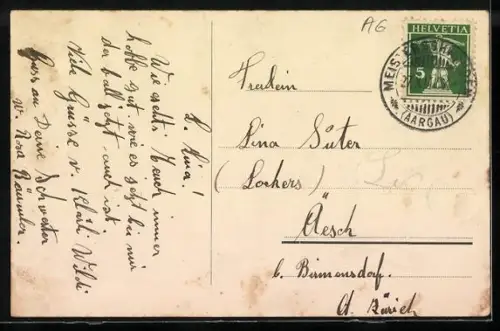 AG
HELVETIA
5
MEISTERSCHWANDEN
(AARGAU)
L. Lina!
Wie geht's Euch immer
hoffe gut, wie es jetzt bei mir
der Fall jetzt auch ist.
Viele Grüsse v. Klärli Wildi
Gruss an Deine Schwester
v. Rosa Bäumler.
Fräulein
Lina Suter
(Lockers)
Äesch
b. Birmensdorf.
Ct. Zürich